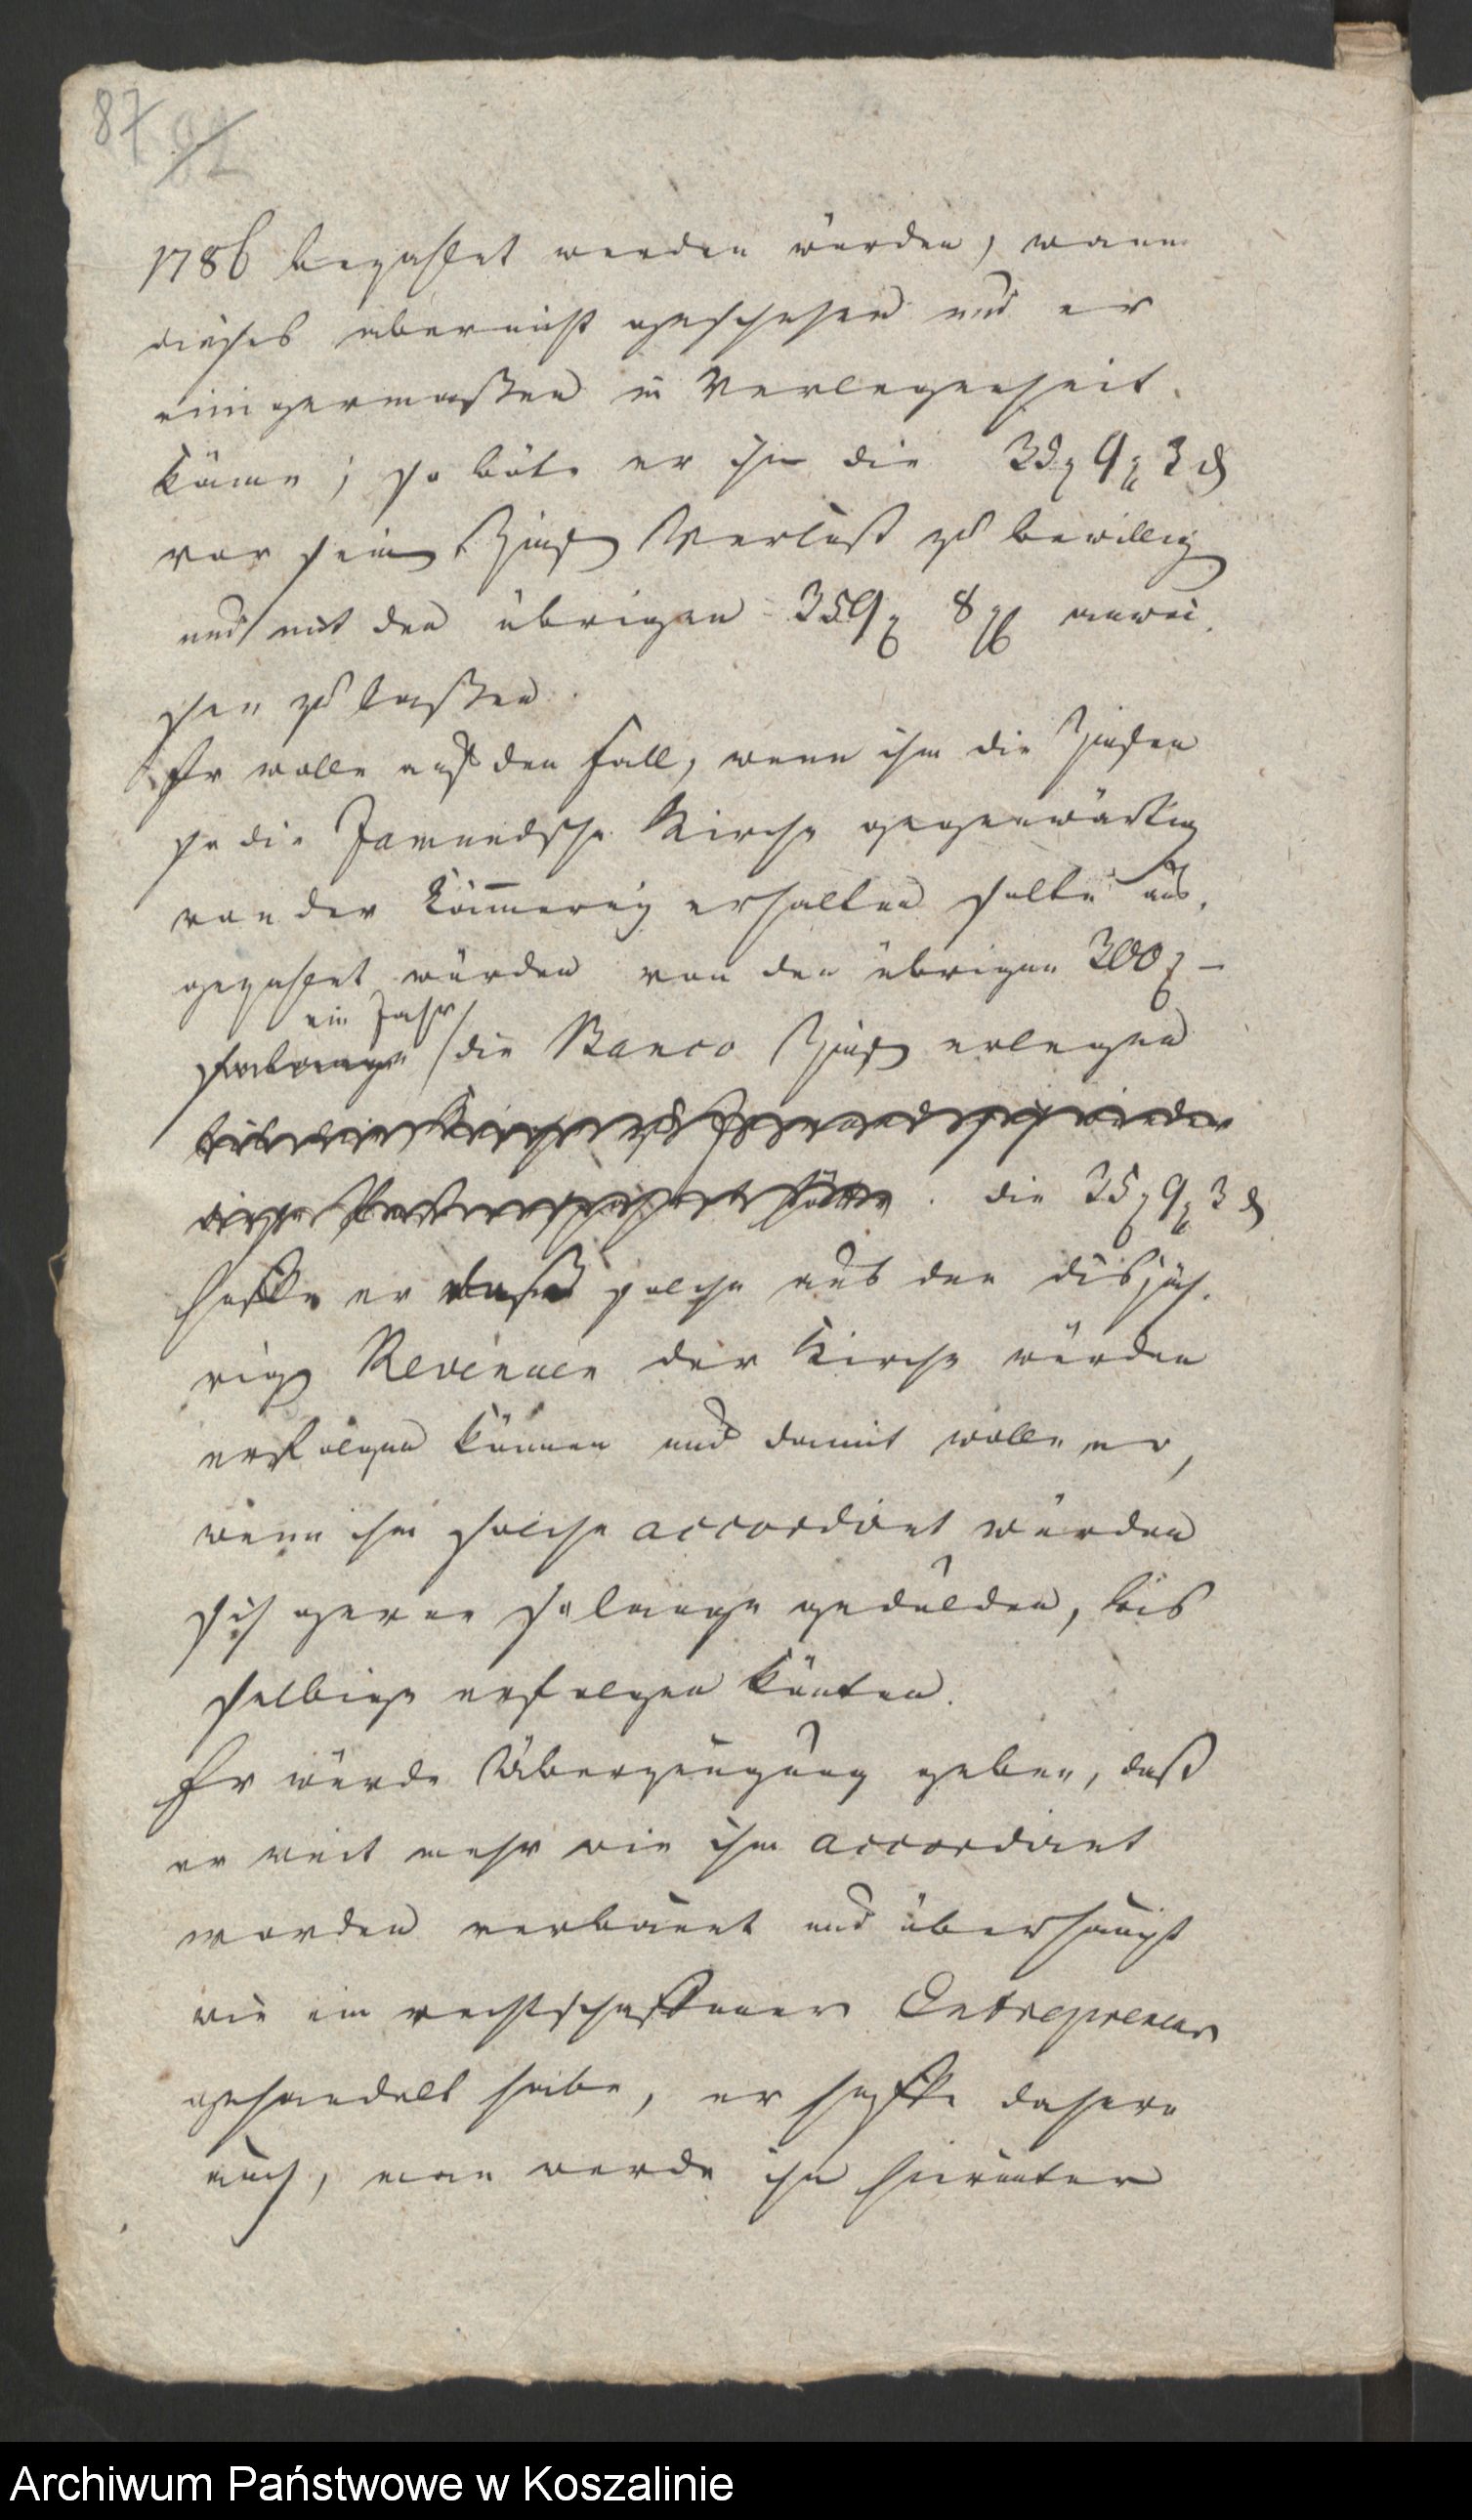 87 82
1786 bezahlet werden würden, wann
dieses aber nicht geschehen und er
einigermaßen in Verlegenheit
käme, so bäte er ihm die 35 9 3 d
vor sein Zinß Verlust zu bewillig
und mit den übrigen 359 8 anwei
sen zu laßen.
Er wolle auf den Fall, wenn ihm die Zinsen
so die Jamundsche Kirche gegenwärtig
von der Cämmerey erhalten solte aus
gezahlet würden von den übrigen 300 –
ein Jahr
solange die Banco Zinß erlegen
die 35 9 3 d
hoffe er daß solche aus den disjäh
rig Revenuen der Kirche würden
erfolgen können und damit wolle er,
wenn ihm solche accordiret würden
sich gerne solange gedulden, bis
selbige erfolgen könten.
Er würde Überzeugung geben, daß
er weit mehr wie ihm accordiret
worden verbauet und überhaupt
wie ein rechtschaffener Entrepreneur
gehandelt habe, er hoffe dahero
auch, man werde ihn hierunter
Archiwum Państwowe w Koszalinie